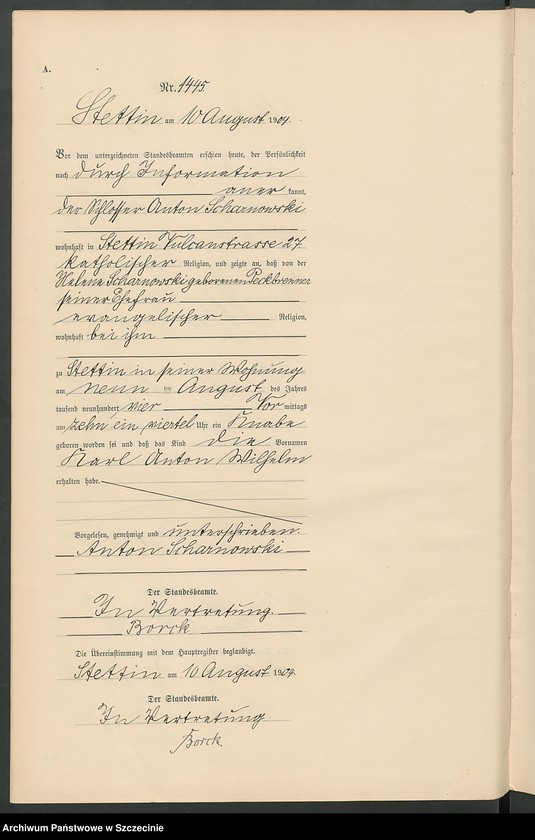 A.
Nr. 1445
Stettin am 10 August 1904.
Vor dem unterzeichneten Standesbeamten erschien heute, der Persönlichkeit
nach durch Information
aner kannt,
der Schlosser Anton Scharnowski
wohnhaft in Stettin Vulcanstrasse 27
katholischer Religion, und zeigte an, daß von der
Helene Scharnowski geborenen Peckbrenner
seiner Ehefrau
evangelischer Religion,
wohnhaft bei ihm
zu Stettin in seiner Wohnung
am neun im August des Jahres
tausend neunhundert vier Vor mittags
um zehn ein viertel Uhr ein Knabe
geboren worden sei und daß das Kind die Vornamen
Karl Anton Wilhelm
erhalten habe.
Vorgelesen, genehmigt und unterschrieben.
Anton Scharnowski
Der Standesbeamte.
In Vertretung.
Borck.
Die Übereinstimmung mit dem Hauptregister beglaubigt.
Stettin am 10 August 1904.
Der Standesbeamte.
In Vertretung
Borck.
Archiwum Państwowe w Szczecinie